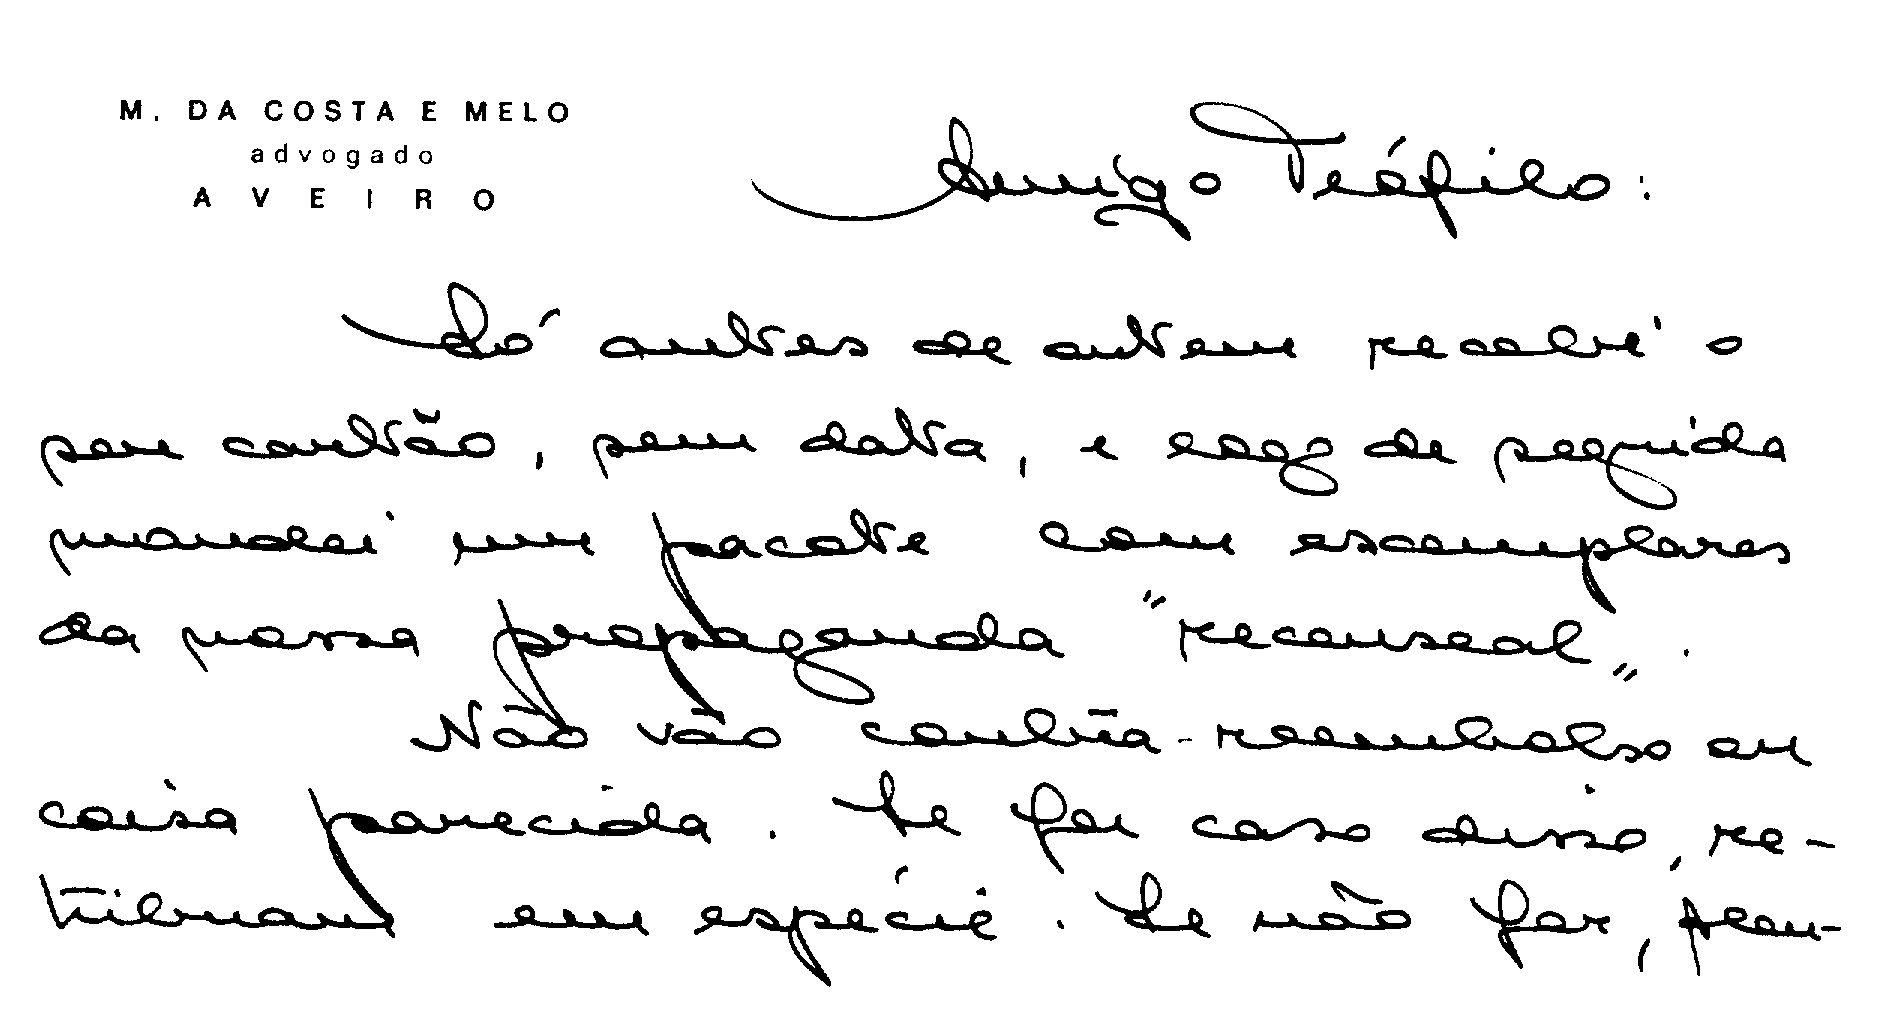 M. DA COSTA E MELO
advogado
AVEIRO
Amigo Teófilo:
Só antes de ontem recebi o
seu cartão, sem data, e logo de seguida
mandei um pacote com exemplares
da nossa propaganda "recenseal".
Não vão contra-reembolso ou
coisa parecida. Se for caso disso, re-
tribuam em espécie. Se não for,